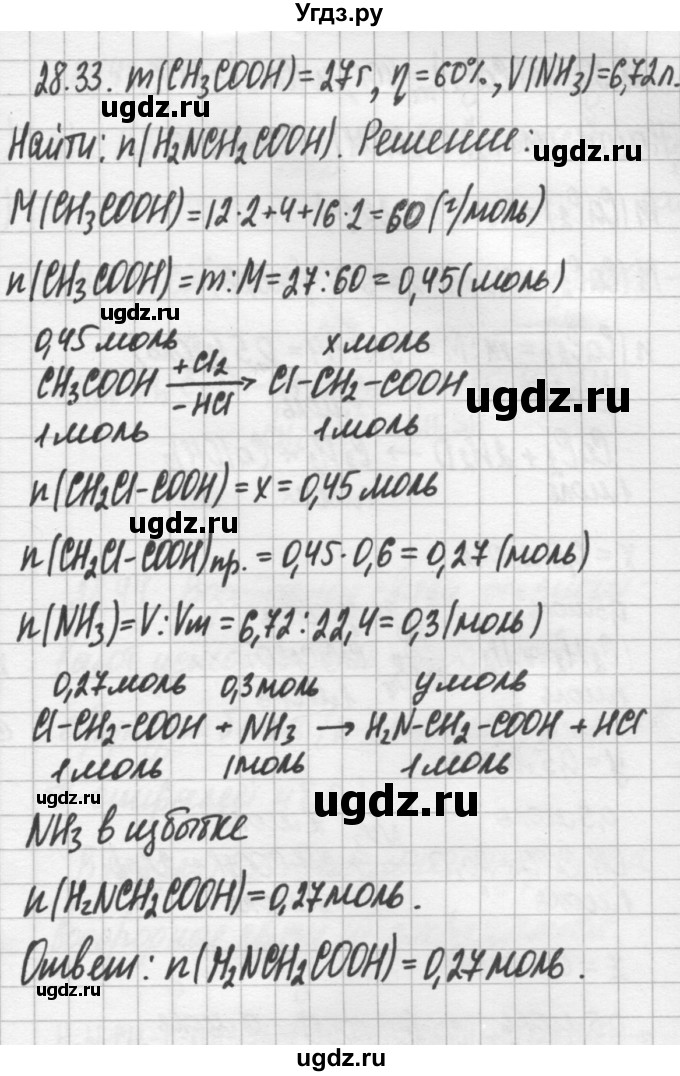 Угдз.ру
28.33. m(CH₃COOH)=27г, η=60%, V(NH₃)=6,72л.
ugdz.ru
ugdz.ru
Найти: n(H₂NCH₂COOH). Решение:
M(CH₃COOH)=12·2+4+16·2=60(г/моль)
n(CH₃COOH)=m:M=27:60=0,45(моль)
ugdz.ru
0,45моль хмоль
CH₃COOH +Cl₂ → -HCl Cl-CH₂-COOH
ugdz.ru
1моль 1моль
n(CH₂Cl-COOH)=x=0,45моль
ugdz.ru
n(CH₂Cl-COOH)пр.=0,45·0,6=0,27(моль)
n(NH₃)=V:Vm=6,72:22,4=0,3(моль)
ugdz.ru
0,27моль 0,3моль умоль
Cl-CH₂-COOH + NH₃ → H₂N-CH₂-COOH + HCl
1моль 1моль 1моль
ugdz.ru
NH₃ в избытке
n(H₂NCH₂COOH)=0,27моль.
Ответ: n(H₂NCH₂COOH)=0,27моль.
ugdz.ru
ugdz.ru
ugdz.ru